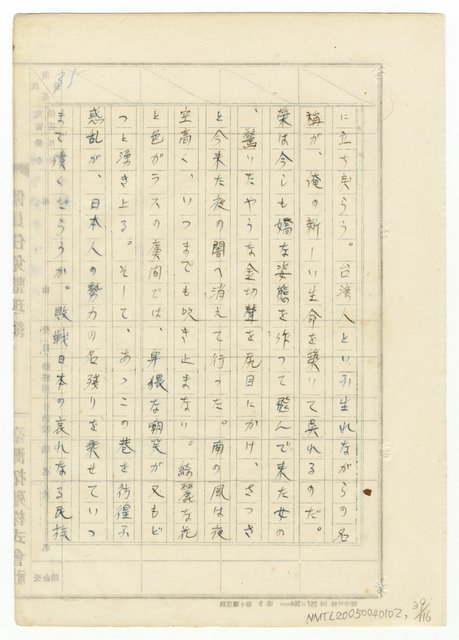 に立ち戻らう。台湾人といふ生れながらの名
稱が、俺の新しい生命を築いて呉れるのだ。
榮は今しも嬌な姿態を作つて飛んで来た女の
、驚いたやうな金切聲を尻目にかけ、さつさ
と今来た夜の闇へ消えて行つた。南の風は夜
空高く、いつまでも吹き止まない。綺麗な花
と色ガラスの廣間では、卑猥な嘲笑が又もど
つと湧き上る。そして、あつこの巷を彷徨ふ
惑乱が、日本人の勢力の名残りを乗せていつ
まで續くだらうか。敗戦日本の哀れなる民族
35
NMTL20050040102,
39/116